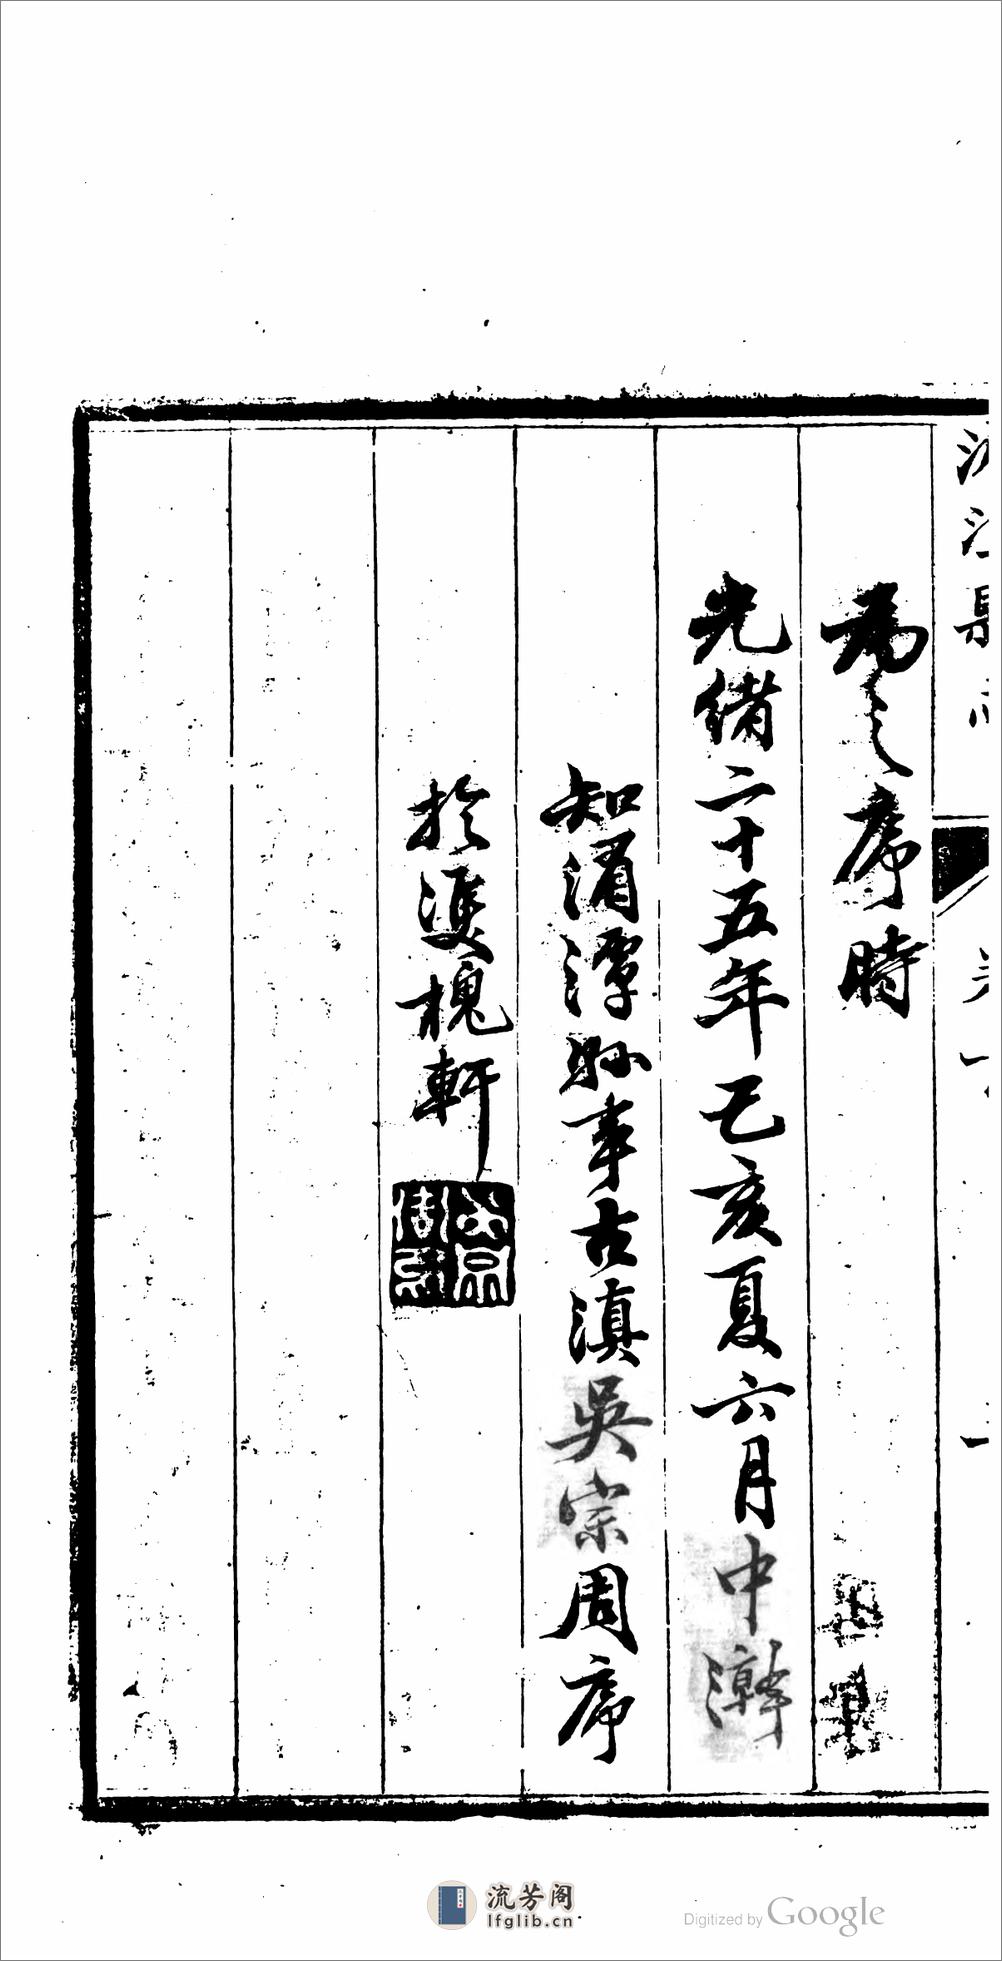 為之序時
光緒二十五年己亥夏六月中澣
知湄潭縣事古滇吳宗周序
於雙槐軒
流芳阁
lfglib.cn
Digitized by Google